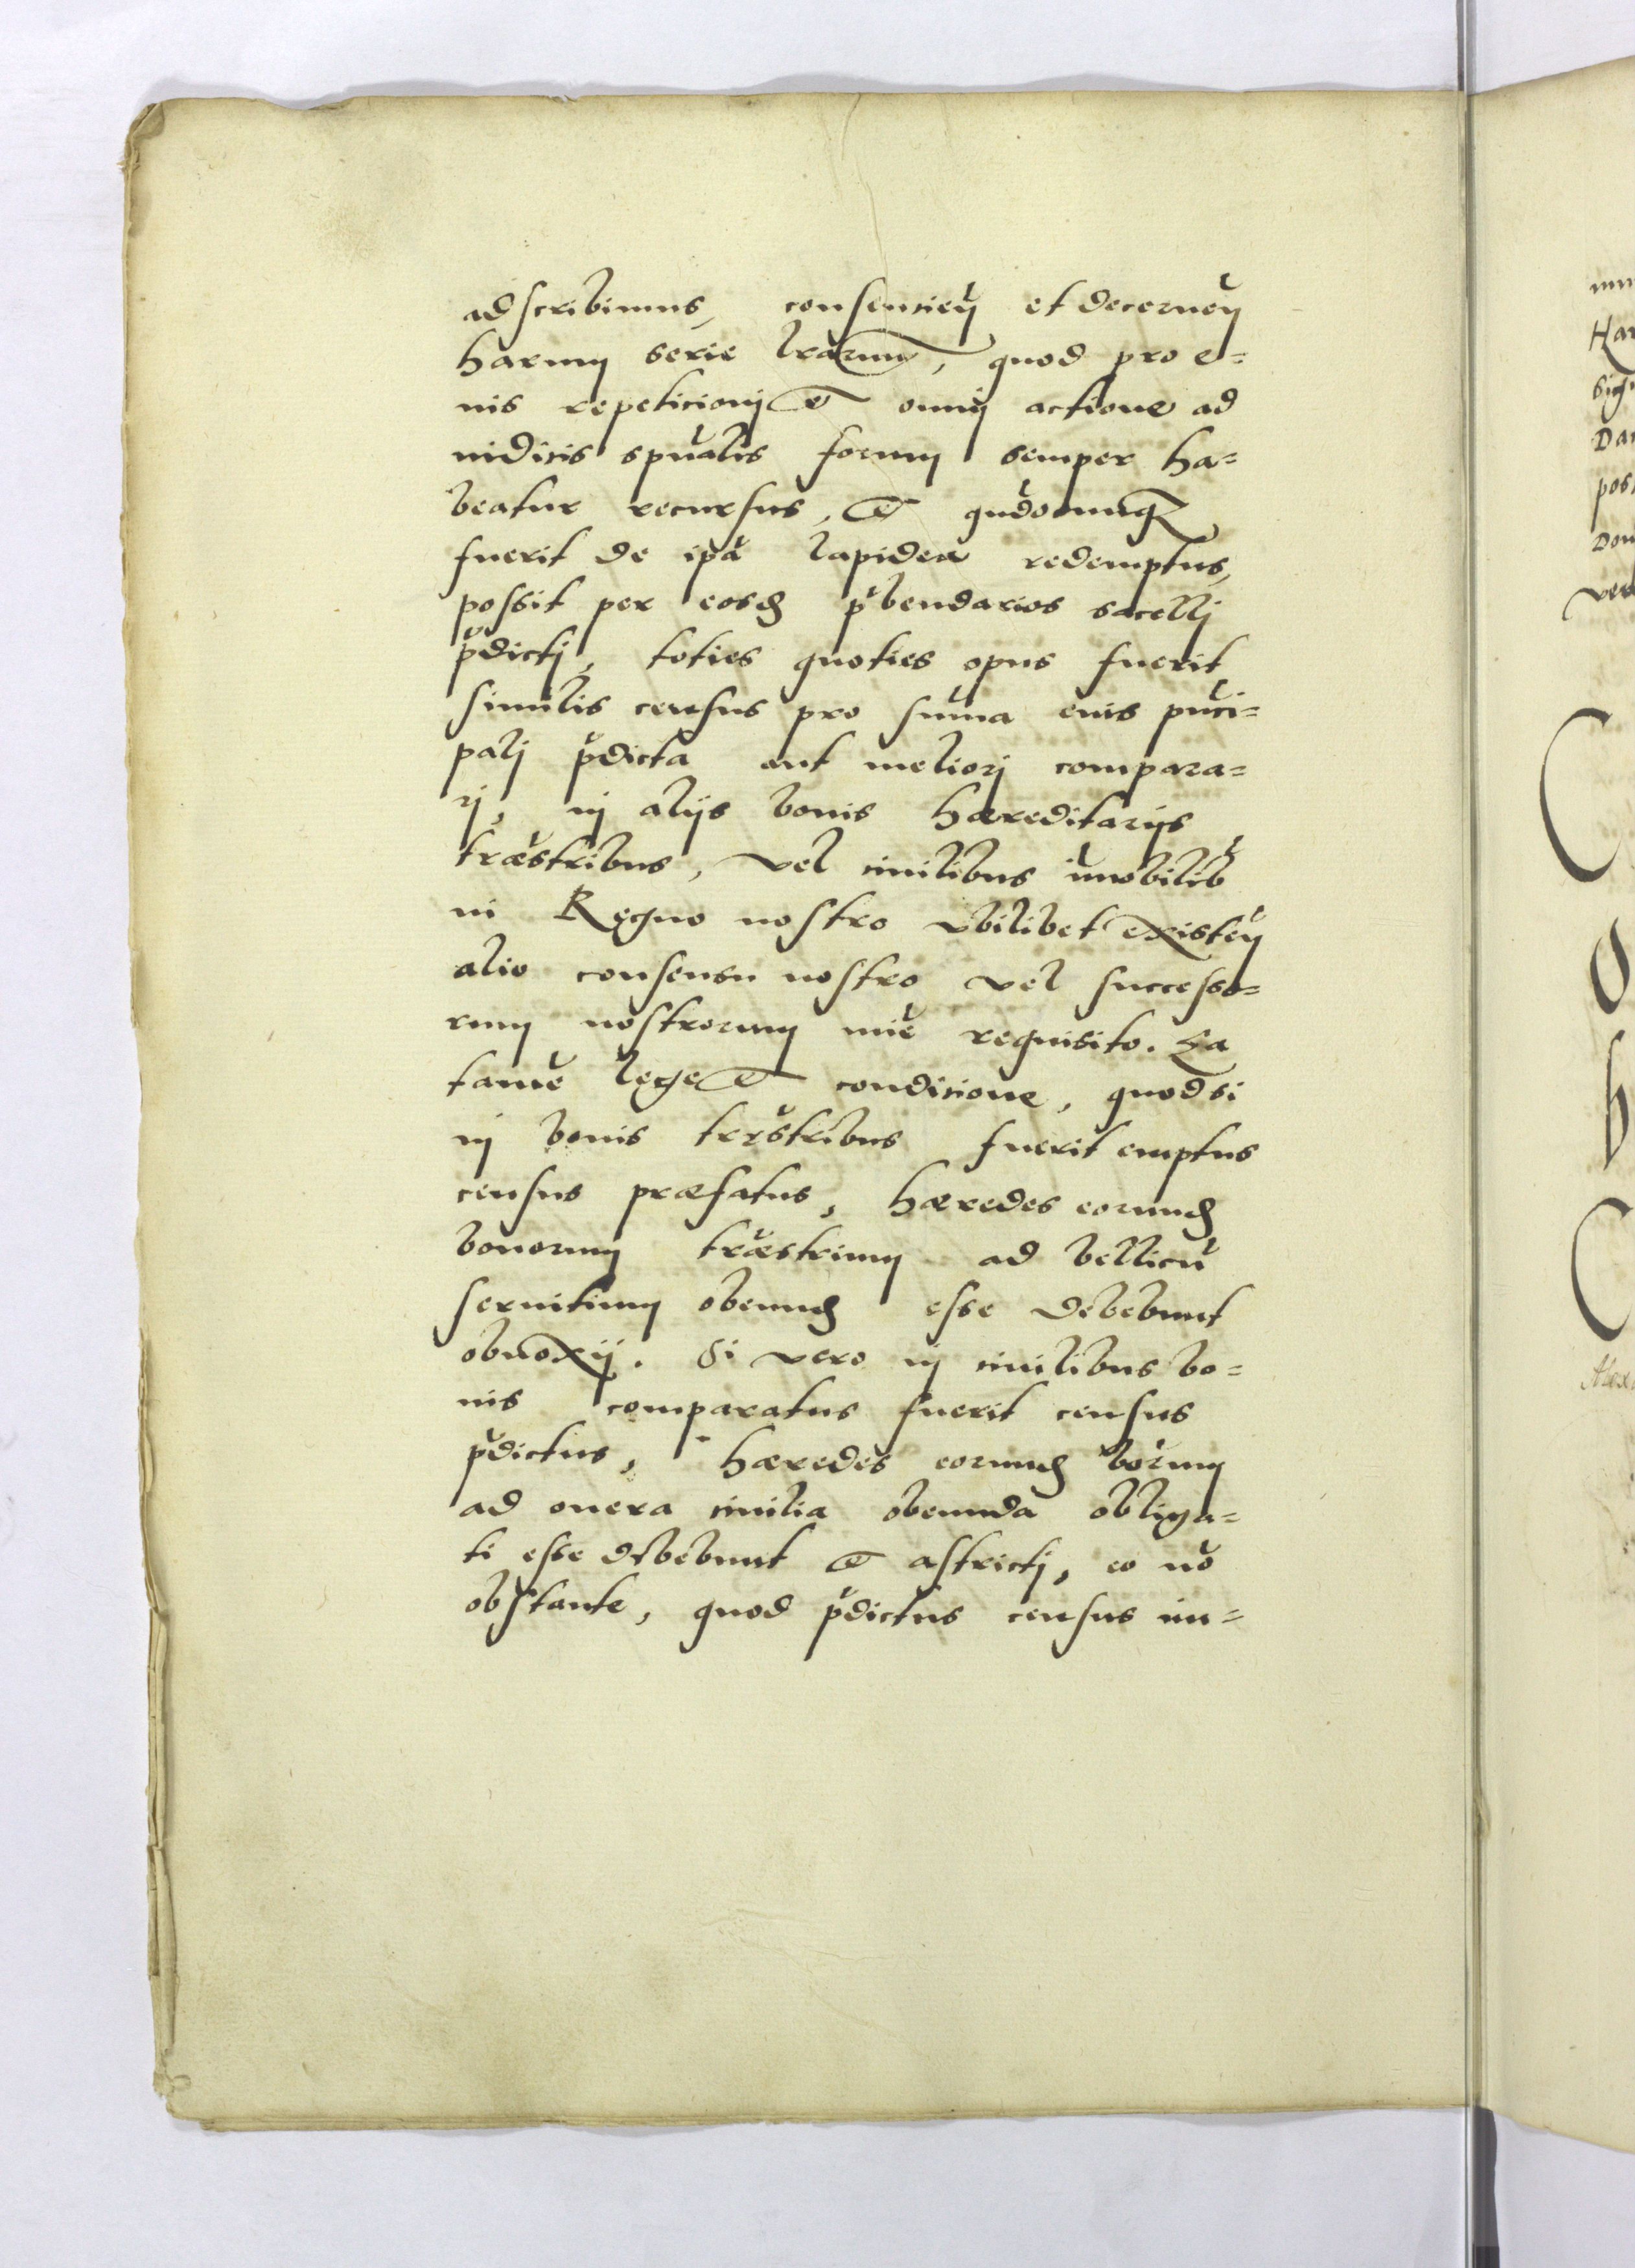 adscribimus, consencieñ et decerneñ
harum serie lrarum, quod pro e=
ius repeticioni et omni actione ad
iudicis spualis forum semper ha=
beatur recursus, et qudocunq
fuerit de ipa lapidea redemptus,
possit per eosd pbendarios sacelli
pdicti, toties quoties opus fuerit
similis census pro suma eius princi=
pali pdicta aut meliori compara=
ri, in alijs bonis hæreditarijs
træstribus, vel ciuilibus imobilib
in Regno nostro vbilibet existeñ
alio consensu nostro vel successo=
rum nostrorum mie requisito. Ea
tame lege et condicione, quod si
in bonis trrstribus fuerit emptus
census præfatus, hæredes eorund
bonorum træstrium ad bellicu
seruitium obeund esse debebunt
obnoxij. Si vero in ciuilibus bo=
nis comparatus fuerit census
pdictus, hæredes eorund borum
ad onera ciuilia obeunda obliga=
ti esse debebunt et astricti, eo no
obstante, quod pdictus census im=